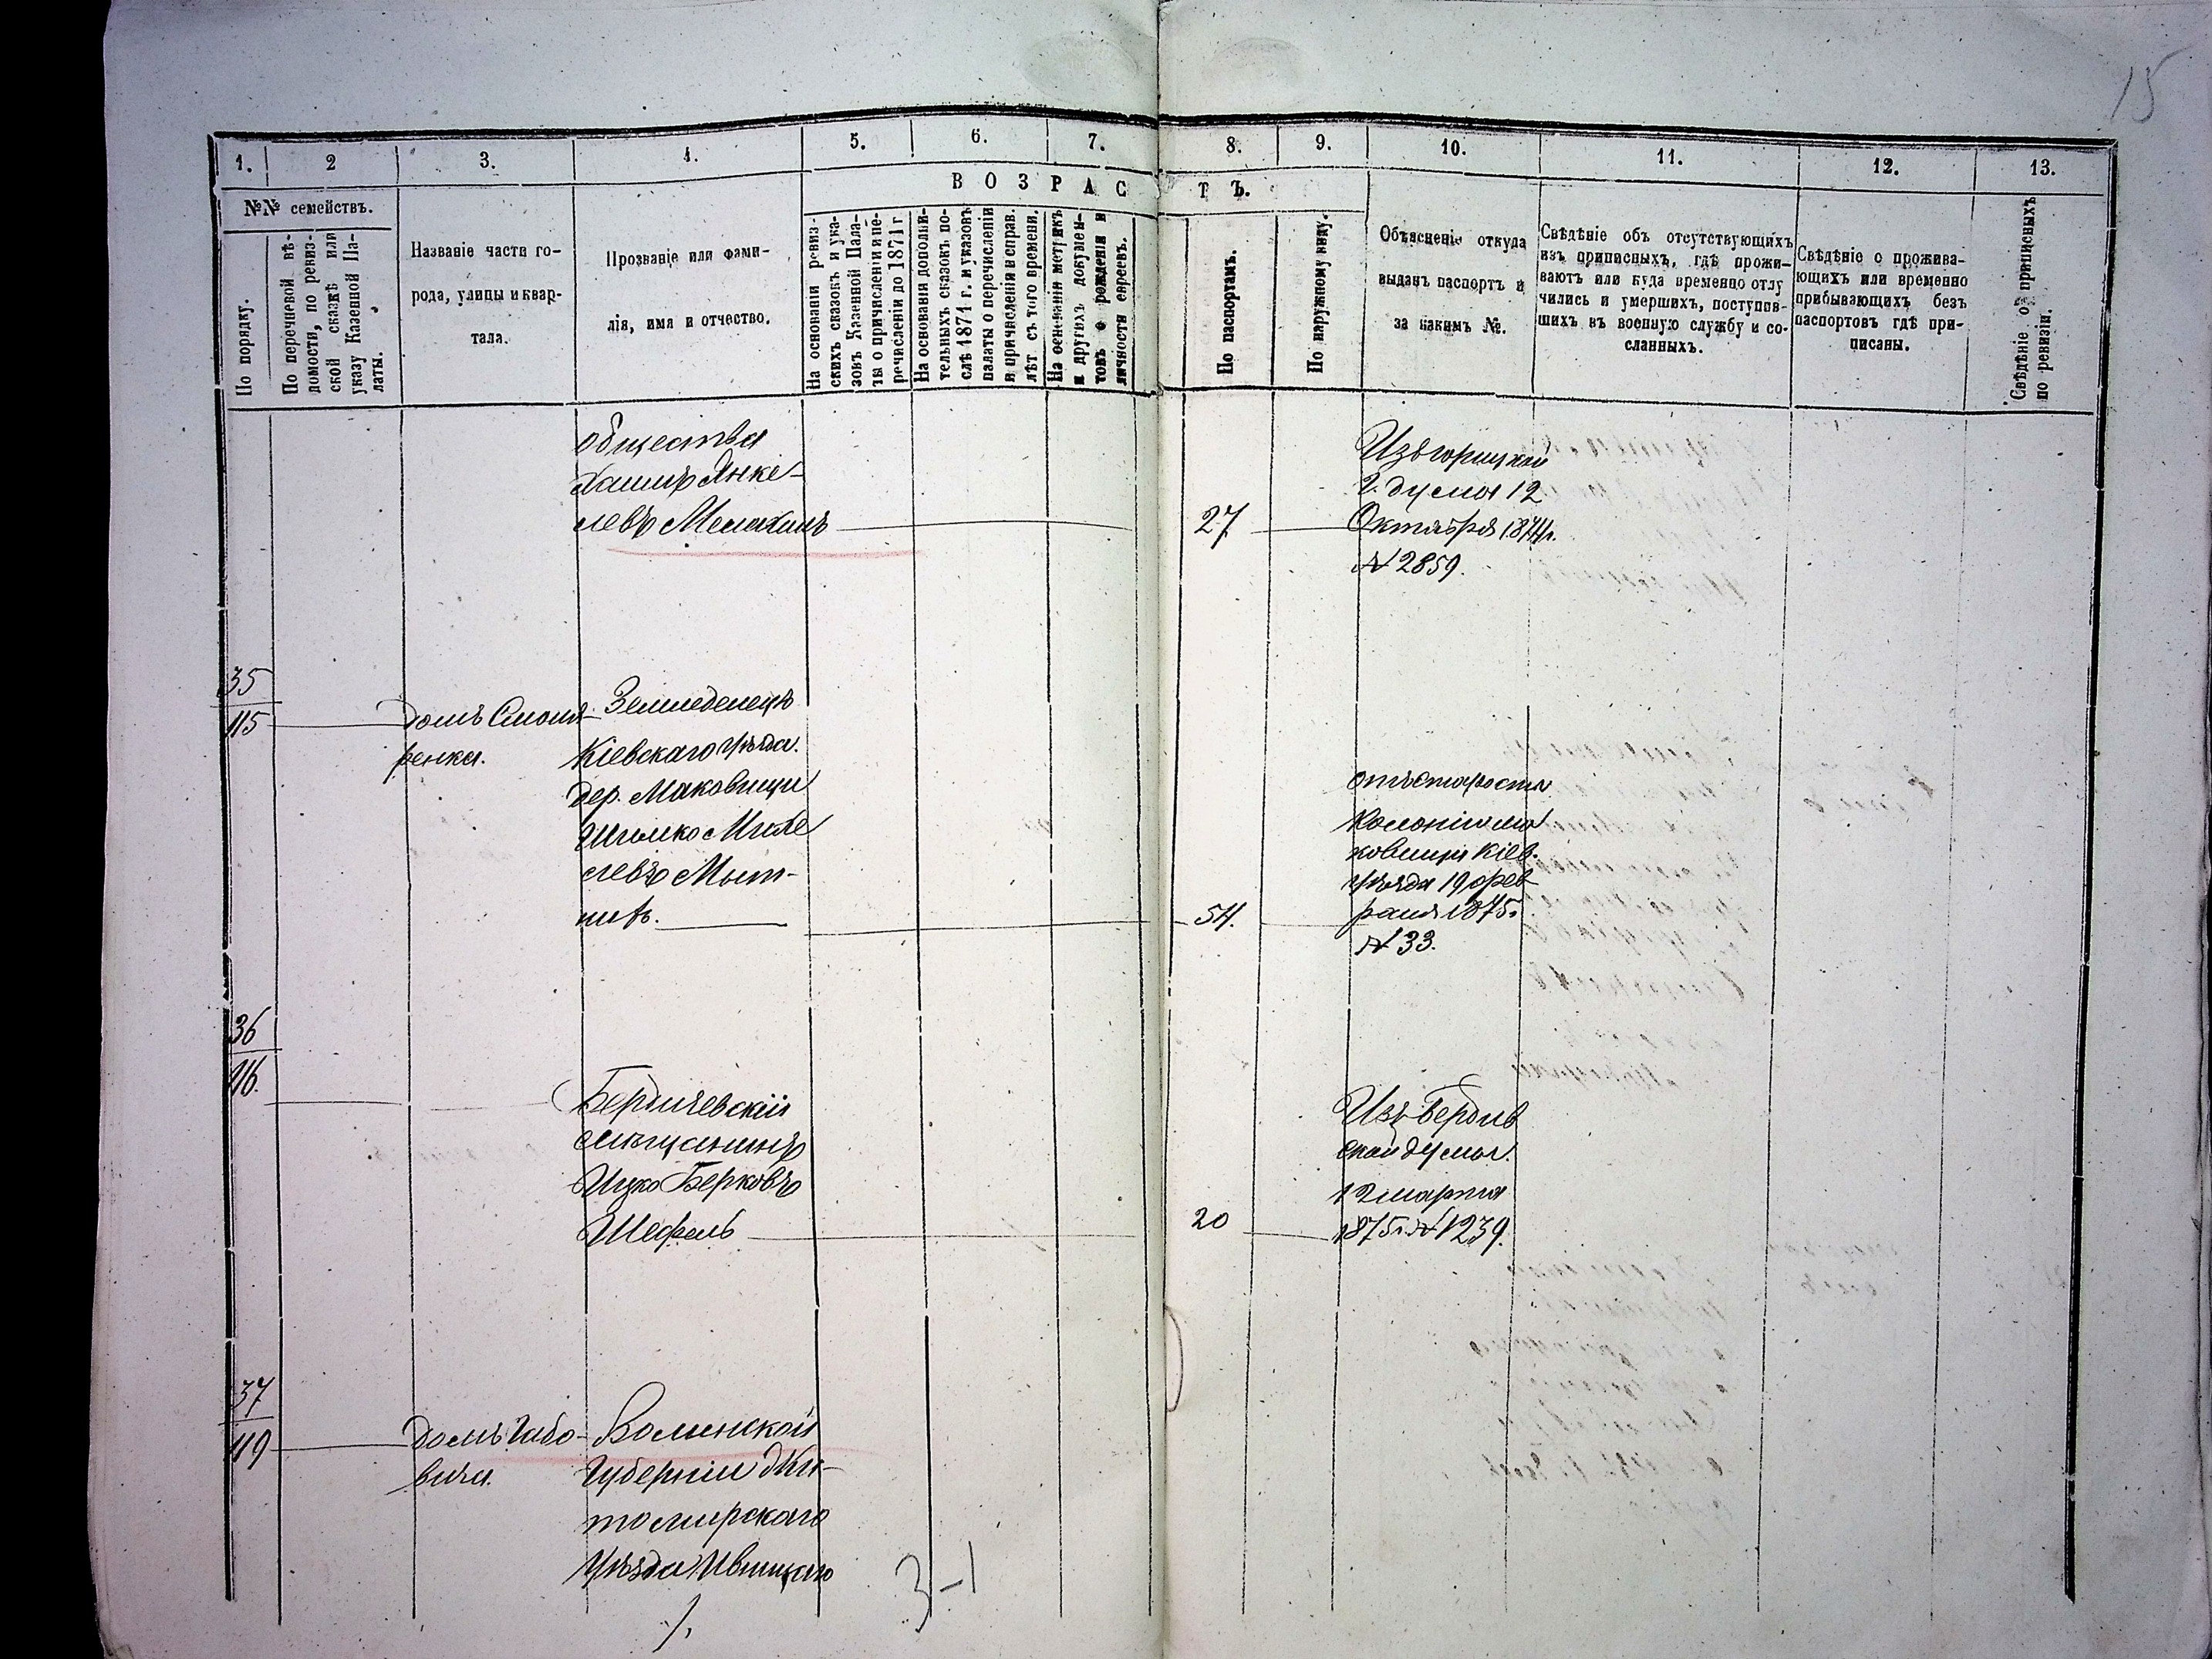 15
1. 2 3. 4. 5. 6. 7. 8. 9. 10. 11. 12. 13.
№№ семействъ.
В О З Р А С Т Ъ.
По порядку.
По перечневой вѣ-
домости, по ревиз-
ской сказкѣ или
указу Казенной Па-
латы.
Названіе части го-
рода, улицы и квар-
тала.
Прозваніе или фами-
лія, имя и отчество.
На основаніи ревиз-
скихъ сказокъ и ука-
зовъ Казенной Пала-
ты о причисленіи и пе-
речисленіи до 1871 г
На основаніи дополни-
тельныхъ сказокъ по-
слѣ 1871 г. и указовъ
палаты о перечисленіи
и причисленіи и справ.
лѣт съ того времени.
На основаніи метрикъ
и другихъ докумен-
товъ о рожденіи и
личности евреевъ.
По паспортамъ.
По наружному виду.
Объясненіе откуда
выданъ паспортъ и
за какимъ №.
Свѣдѣніе объ отсутствующихъ
изъ приписныхъ, гдѣ прожи-
ваютъ или куда временно отлу
чились и умершихъ, поступив-
шихъ въ военную службу и со-
сланныхъ.
Свѣдѣніе о прожива-
ющихъ или временно
прибывающихъ безъ
паспортовъ гдѣ при-
писаны.
Свѣдѣніе о приписныхъ
по ревизіи.
общества
Хаимъ Янке-
левъ
27
Изъ
г. думы 12
Октября 1874 г.
№ 2859.
35
115
домъ Смоля-
ренка.
Земледелецъ
Кіевскаго уѣзда.
дер. Маковищи
Шлемко Михе
левъ Мыт-
никъ.
54.
отъ старосты
Колоніи Ма
ковищи Кіев.
уѣзда 19 фев
раля 1875 г.
№ 33.
36
116.
Бердичевскій
мѣщанинъ
Ицко Берковъ
Шефель
20
Изъ Бердич
ской думы.
12 марта
1875 г. № 1239.
37
119
домъ Габо-
вича.
Волынской
Губерніи Жи-
томирскаго
Уѣзда Ивницкаго
3-1
1.